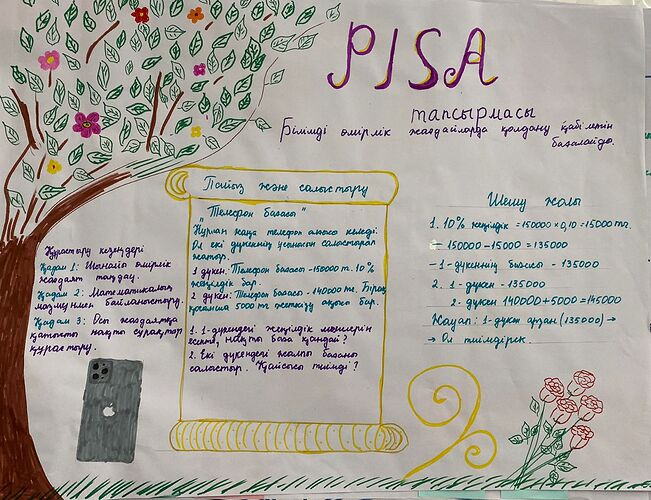 PISA
тапсырмасы
Білімді өмірлік жағдайларда қолдану қабілетін
бағалайды.
Пайыз және салыстыру
"Телефон бағасы"
Нұрлан жаңа телефон алғысы келеді.
Ол екі дүкеннің ұсынысын салыстырып
жатыр.
1 дүкен: Телефон бағасы -150000 т. 10%
жеңілдік бар.
2 дүкен: Телефон бағасы - 140000 т. Бірақ
қосымша 5000 тг жеткізу ақысы бар.
1. 1-дүкендегі жеңілдік мөлшерін
есепте, нақты баға қандай?
2. Екі дүкендегі жалпы бағаны
салыстыр. Қайсысы тиімді?
Құрастыру кезеңдері
Қадам 1: Шынайы өмірлік
жағдаят таңдау.
Қадам 2: Математикалық
мазмұнмен байланыстыру.
Қадам 3: Осы жағдаятқа
қатысты нақты сұрақтар
құрастыру.
Шешу жолы
1. 10% жеңілдік =150000×0,10=15000тг.
- 150000-15000=135000
- 1-дүкеннің бағасы - 135000
2. 1-дүкен - 135000
2-дүкен 140000+5000=145000
Жауап: 1-дүкен арзан (135000) →
→ Ол тиімдірек.